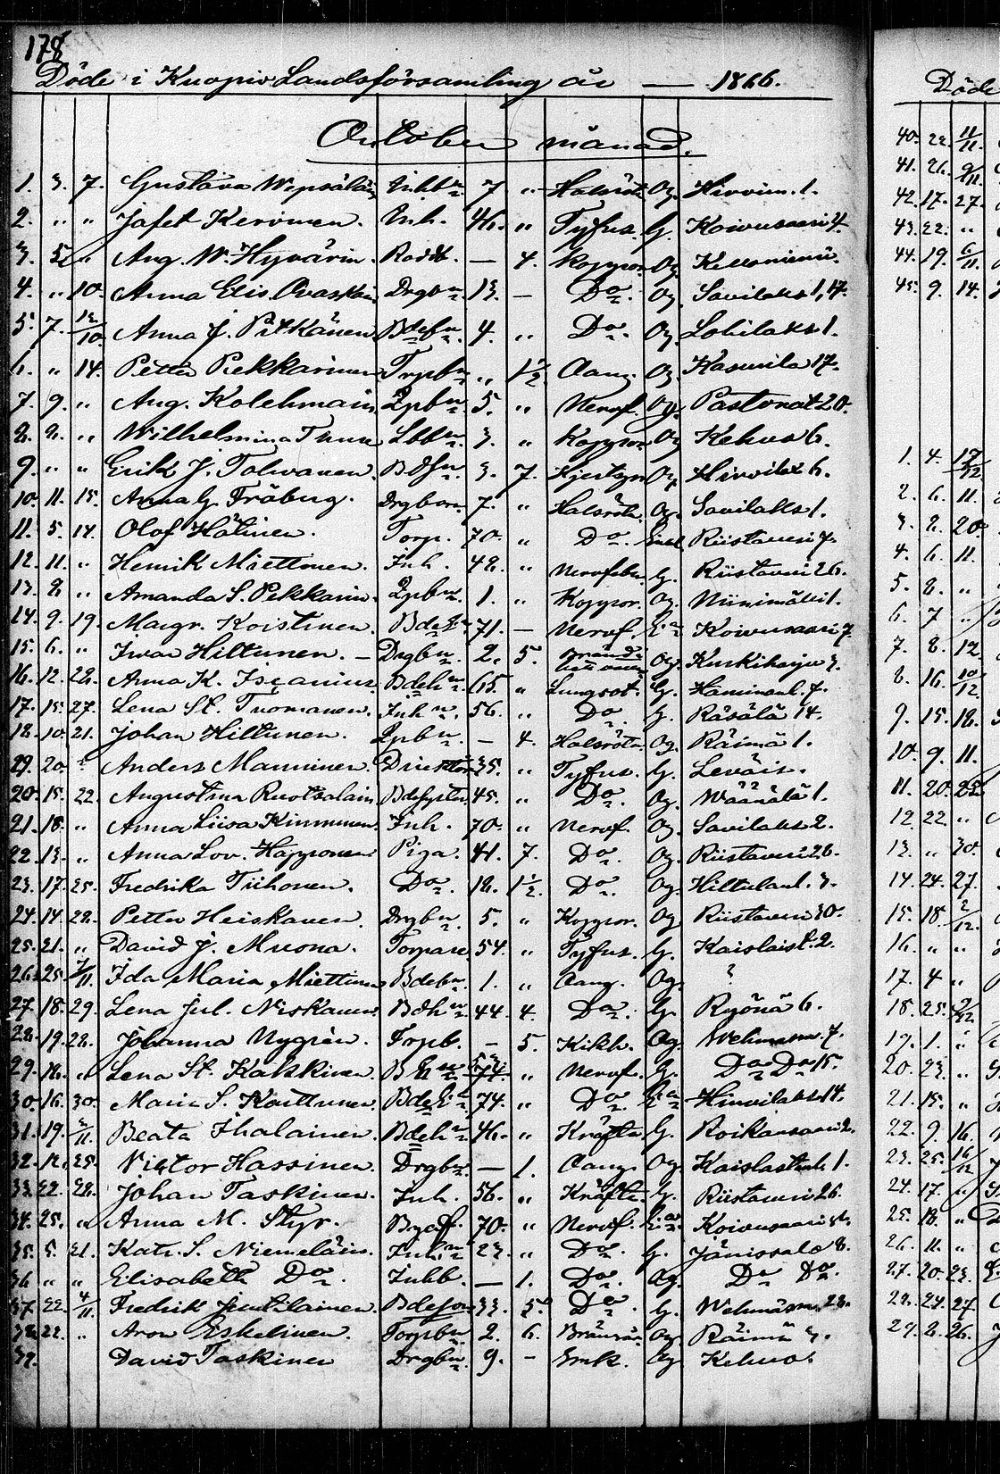 178
Döde i Kuopio Landsförsamling år — 1866.
October månad.
1. 3. 7. Gustava Wepsäläin Inhb 7 " Halsröt Og. Hirvim. 1.
2. " " Jafet Kervinen. Inh. 46. " Tyfus. G. Koivusaari 4.
3. 5. " Aug. W. Hyvärin. Rodt. — 4. Koppor Og
4. " 10. Anna Elis. Ovaskain Drgbn 13. — Do. Og. Savilaks 1, 17.
5. 7. 12/10. Anna J. Pitkänen 4. " Do. Og. Lohilaks 1.
6. " 14. Petter Pekkarinen Trpbn " 1 1/2. Aang. Og. Kasurila 17.
7. 9. " Aug. Kolehmain 5. " Nervf. Og. Pastorat 20.
8. 8. " Wilhelmina 3. " Koppor Og Kehvo 6.
9. " " Erik J. Tolvanen. Bdsn 3. 7. Og. Hirvilax 6.
10. 11. 15. Anna G. Fröberg. Drgbarn 7. " Halsröta. Og. Savilaks 1.
11. 5. 14. Olof Hätinen. Torp. 70. " Do. Enkl Riistaveri 7.
12. 11. " Henrik Miettinen. Inh. 48. " Nervfeber G. Riistaveri 26.
13. 8. " Amanda S. Pekkarin. 1. " Koppor. Og. Niinimäki 1.
14. 9. 19. Margr. Koistinen. 71. — Nervf. Koivusaari 7.
15. 6. " Iwar Hiltunen. — Drgbn. 2. 5. Og. Kurkiharju 3.
16. 12. 28. Anna K. Bdehu 65. " Lungsot. G. Haminanl. 7.
17. 15. 27. Lena St. Tuomainen. Inhn. 56. " Do. G. Räsälä 14.
18. 10. 21. Johan Hiltunen. — 4. Halsröta. Og. Räimä 1.
29. 20. Anders Manninen. 35. " Tyfus. G. Leväis.
20. 15. 22. Augustina Ruotsalain 45. " Do. Og. Väänälä 1.
21. 18. " Anna Liisa Kinnunen Inh. 70. " Nervf. Og. Savilaks 2.
22. 13. " Anna Lov. Happonen Piga. 41. 7. Do. Og. Riistaveri 26.
23. 17. 25. Fredrika Tiihonen. Do. 18. 1 1/2. Do. Og. Hiltulanl. 3.
24. 14. 28. Petter Heiskanen. Drgbn 5. " Koppor. Og Riistaveri 30.
25. 21. " David J. Muona. Torpare 54. " Tyfus. G. Kaislast. 2.
26. 25. 7/11. Ida Maria Miettinen Bdebn. 1. " Aang. Og. ?
27. 18. 29. Lena Jul. Niskanen Bdh 44. 4. Do. G. Ryönä 6.
28. 19. 28. Johanna Nygrén. Trpb. — 5. Kikh. Og. Wehmasm. 7.
29. 16. " Lena St. Kakkinen. 74 " Nervf. G. Do Do 15.
30. 16. 30. Maria S. Karttunen. 74. " Do. Hirvilaks 14.
31. 19. 3/11. Beata Ihalainen. Bdehn 46. " Kräfta G. Roikansaari 2.
32. 12. 25. Victor Hassinen. Drgbn — 1. Aang. Og. Kaislastenl. 1.
33. 22. 28. Johan Taskinen. Inh. 56. " Kräfta. G. Riistaveri 26.
34. 25. " Anna M. Styr. 70. " Nervf. Koivusaari
35. 5. 21. Katr. S. Niemeläin. Inhn 23. " Do. G. Jänissalo 8.
36 " " Elisabeth Do. Inhb. — 1. Do. Og. Do Do.
37. 22. 4/11. Fredrik Juutilainen. Bdeson 33. 5. Do. G. Wehmasm. 23.
38. 22. " Aron Eskelinen. Torpbn 2. 6. Og Räimä 3.
39. David Taskinen Drgbn 9. — Og Kehvo.
Döde
40. 22. 11/11.
41. 26. 9/11.
42. 17. 27.
43. 22. "
44. 19. 6/11.
45. 9. 14.
1. 4. 17/12
2. 6. 11.
3. 2. 20.
4. 6. 11.
5. 8. "
6. 7 "
7. 8. 12
8. 16. 10/12
9. 15. 18.
10. 9. 11.
11. 20. 25.
12. 22. "
13. " 30.
14. 24. 27.
15. 18 2/12.
16. " "
17. 4 "
18. 25. 2/12
19. 1. "
20. 23. "
21. 15. "
22. 9. 16.
23. 25. 16/12
24. 17. "
25. 18. "
26. 11. "
27. 20. 23.
28. 24. 27
29. 8. 26.